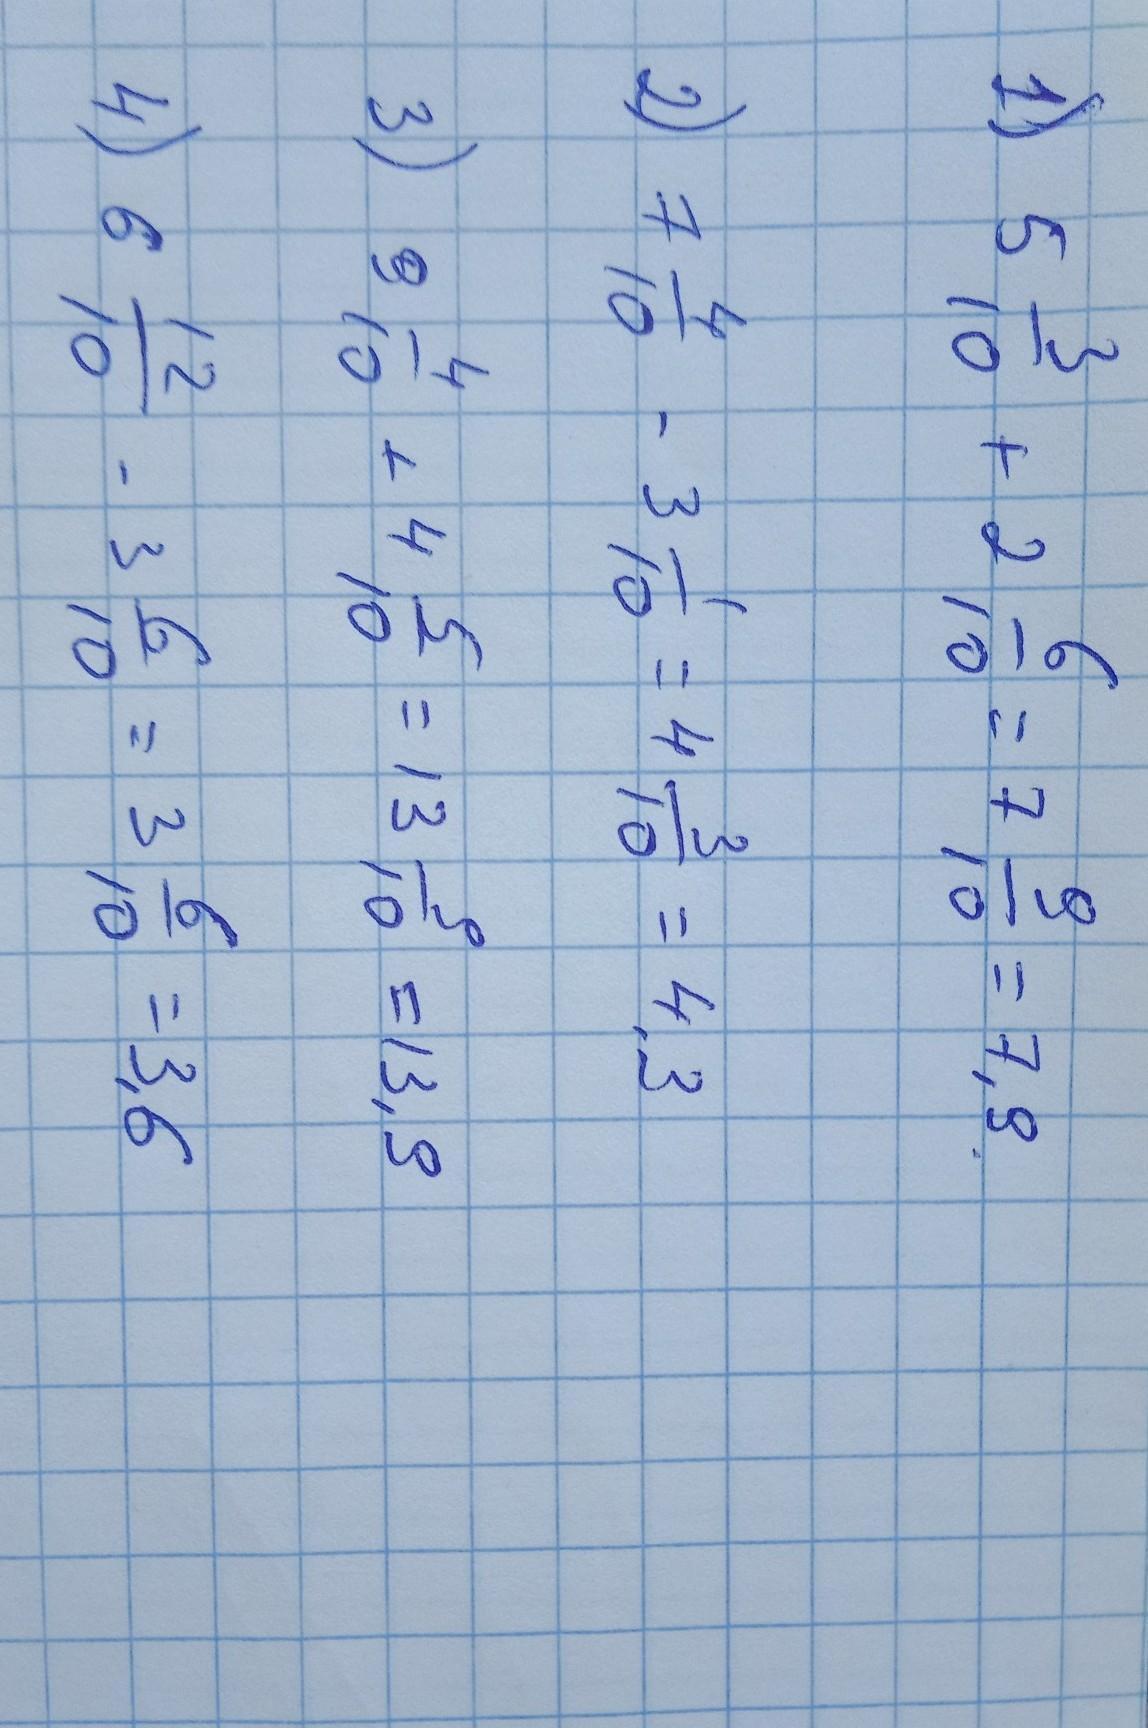 1) 5 3/10 + 2 6/10 = 7 9/10 = 7,9.
2) 7 4/10 - 3 1/10 = 4 3/10 = 4,3
3) 9 4/10 + 4 5/10 = 13 9/10 = 13,9
4) 6 12/10 - 3 6/10 = 3 6/10 = 3,6